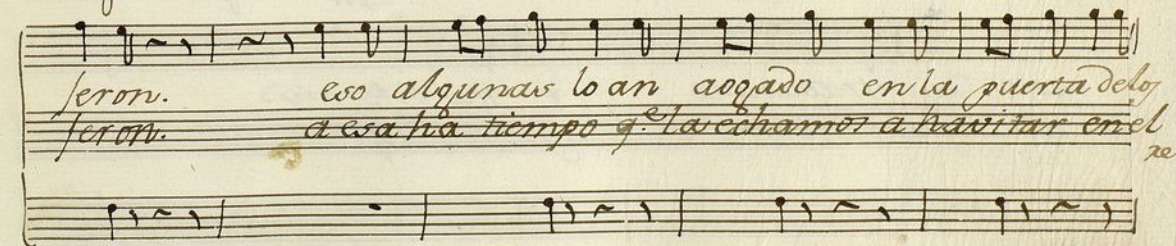 seron. eso algunas lo an aogado en la puerta de los
seron. a esa ha tiempo q.e la echamos a havitar en el
re